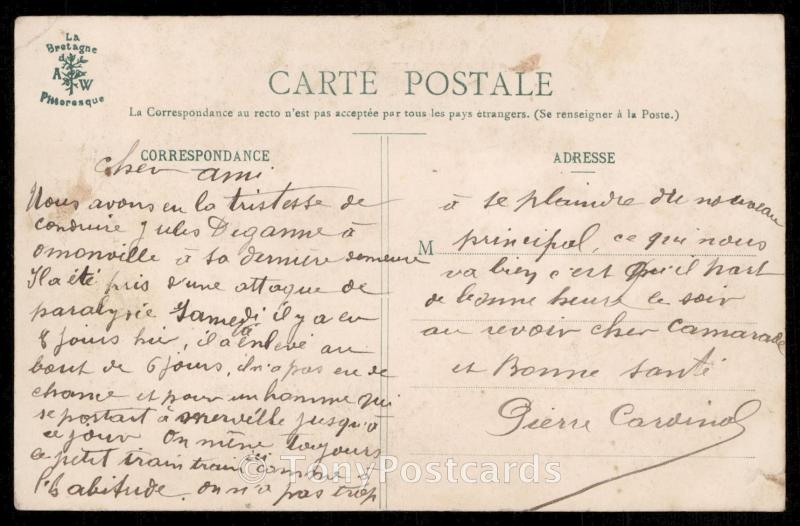 La
Bretagne
d
A W
Pittoresque
CARTE POSTALE
La Correspondance au recto n'est pas acceptée par tous les pays étrangers. (Se renseigner à la Poste.)
CORRESPONDANCE
cher ami
Nous avons eu la tristesse de
conduire Jules Deganne à
omonville à sa dernière demeure
Il a été pris d'une attaque de
paralysie Samedi il y a eu
8 jours hier, il a été enlevé au
bout de 6 jours, il n'a pas eu de
chance et pour un homme qui
se portait à merville jusqu'à
ce jour On mène toujours
ce petit train train comme d
l'habitude. on n'a pas trop
ADRESSE
M
à se plaindre du nouveau
principal, ce qui nous
va bien c'est qu'il part
de bonne heure le soir
au revoir cher Camarade
et Bonne Santé
Pierre Cardinal
© TonyPostcards